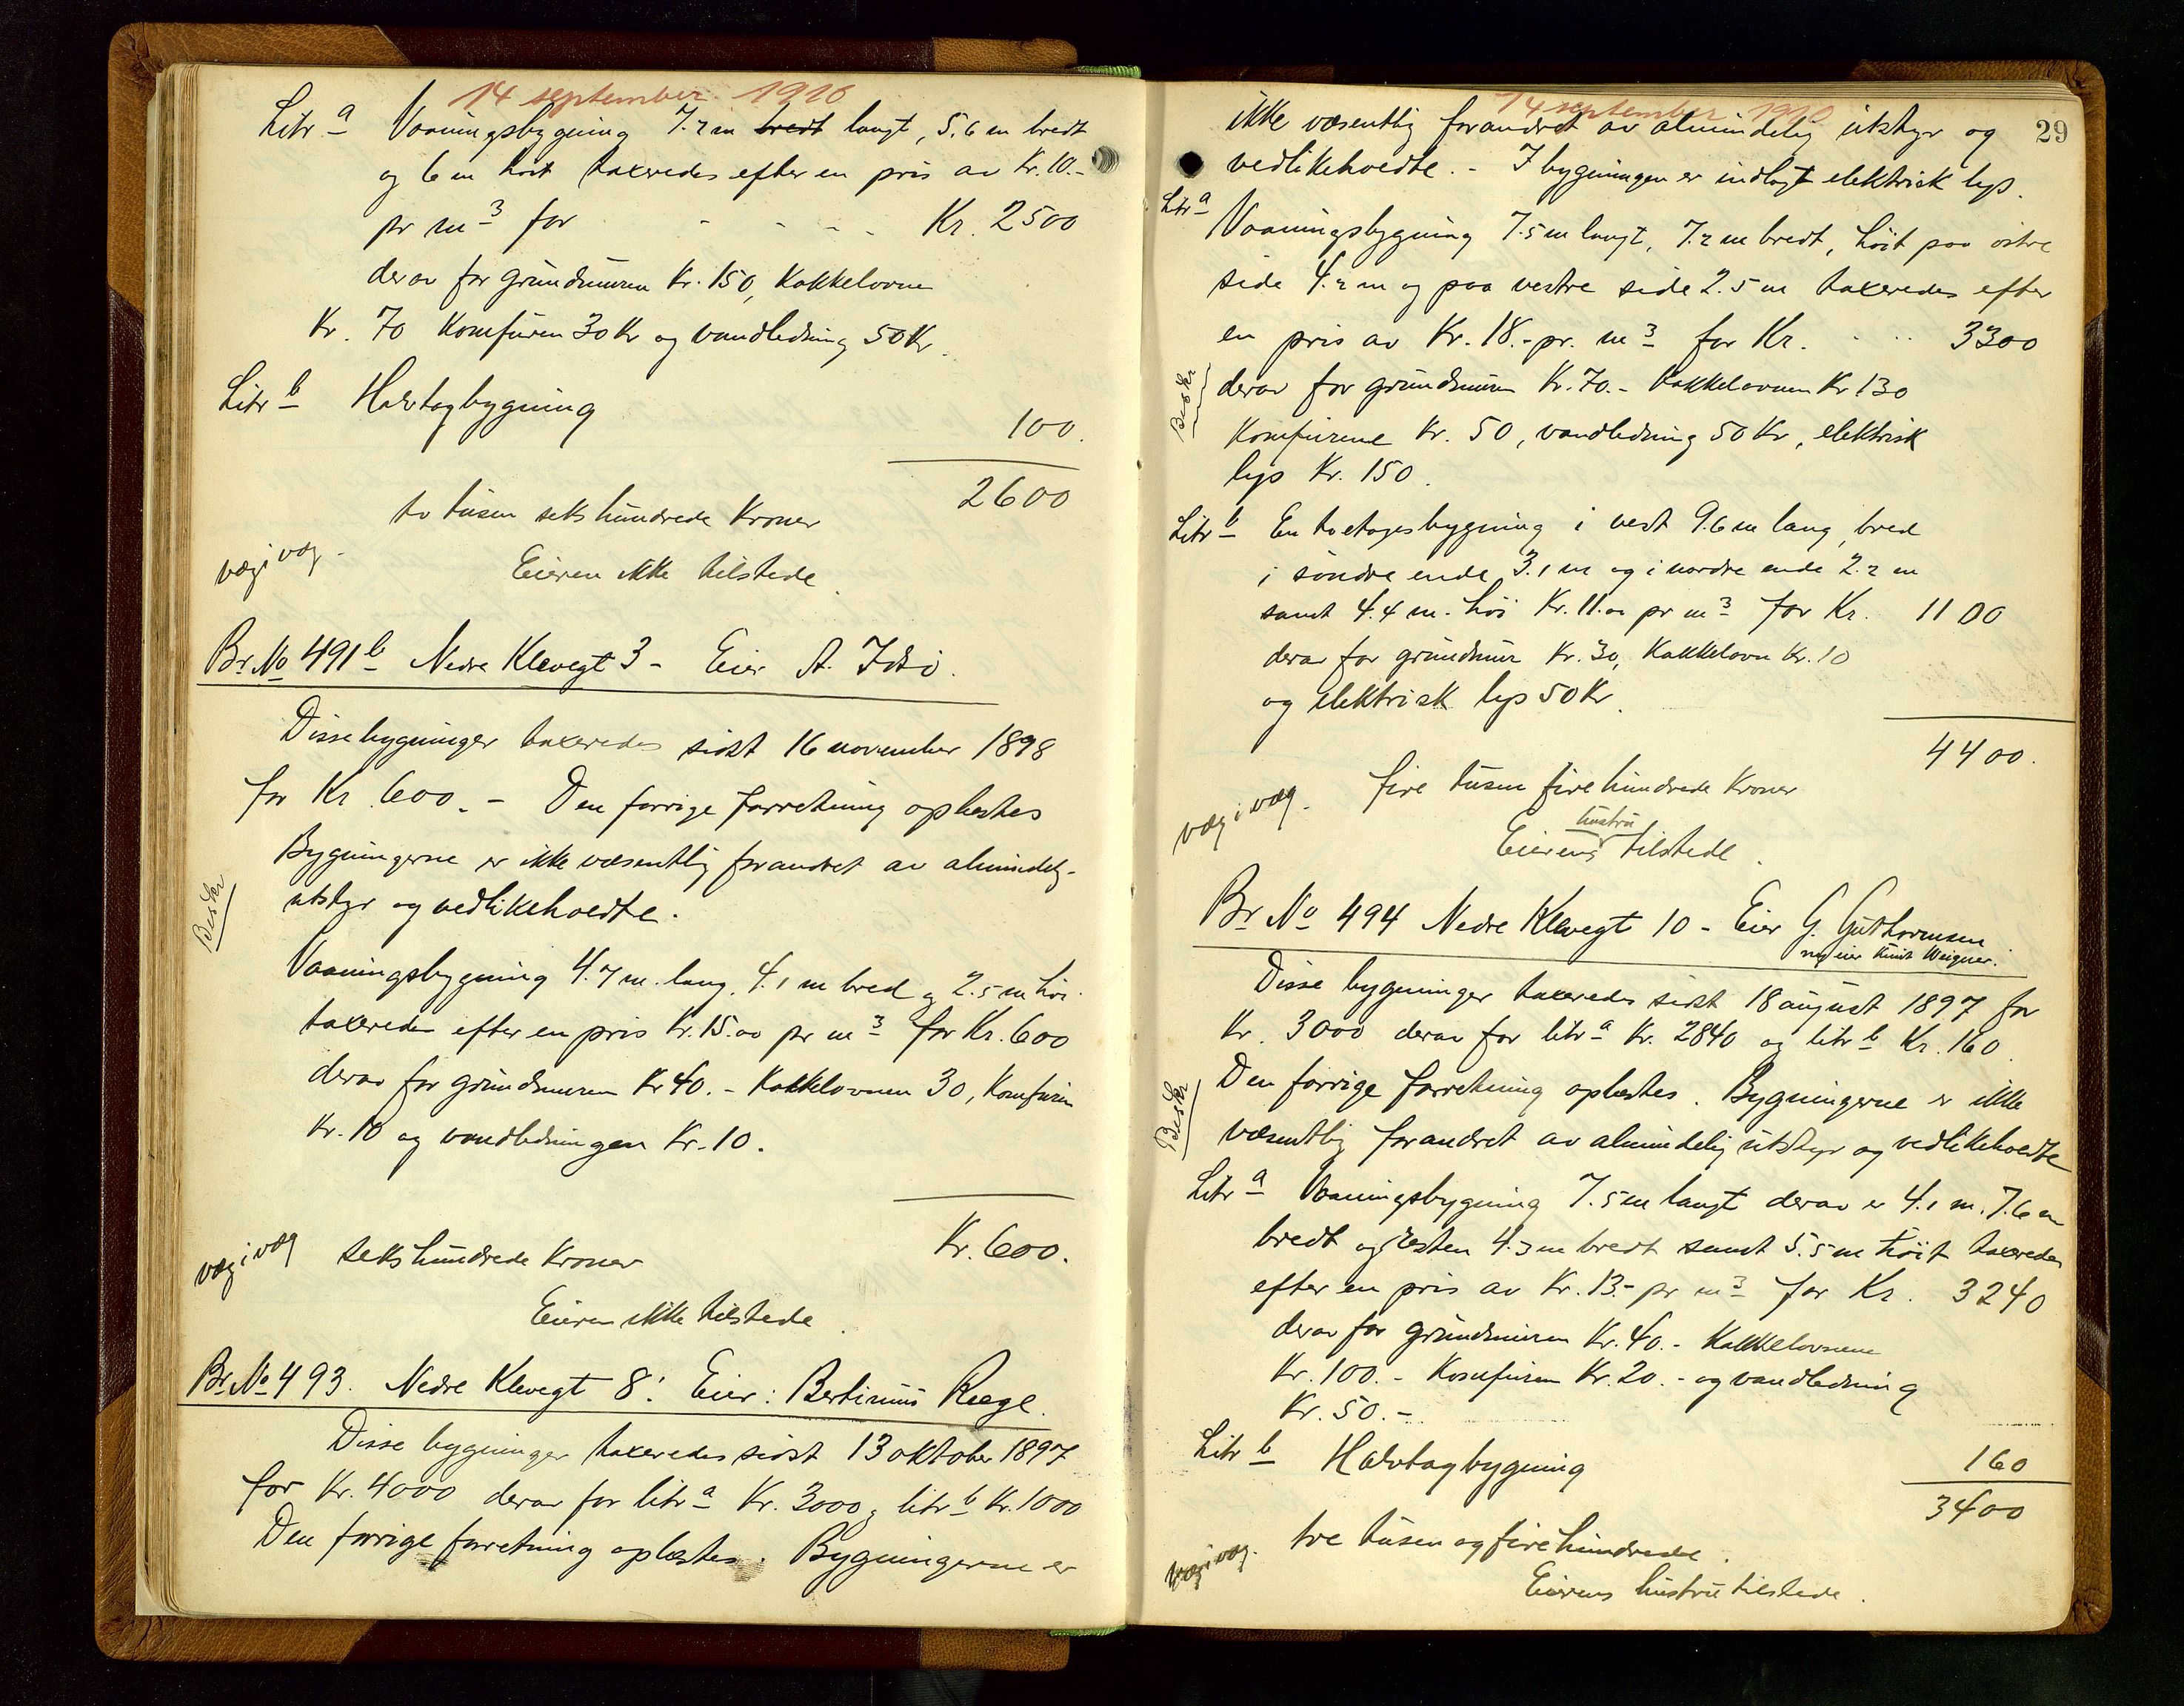 14 september 1910
Litr a Vaaningsbygning 7.2 m bredt langt, 5.6 m bredt
og 6 m høit taxeredes efter en pris av Kr. 10.-
pr m3 for - - - - Kr. 2500
derav for grundmuren Kr. 150, Kakkelovne
Kr. 70 Komfuren 30 Kr og vandledning 50 Kr.
Litr b Halvtagbygning
100.
2600
to tusen seks hundrede Kroner
væg i væg.
Eieren ikke tilstede.
Br. No 491b Nedre Klevegt 3 - Eier A. Idsö.
Disse bygninger taxeredes sidst 16 november 1898
for Kr. 600. - Den forrige forretning oplæstes
Bygningerne er ikke væsentlig forandret av almindelig
utstyr og vedlikeholdte.
Beskr
Vaaningsbygning 4.7 m. lang, 4.1 m bred og 2.5 m høi
taxeredes efter en pris Kr. 15.00 pr m3 for Kr. 600
derav for grundmuren Kr 40. - Kakkelovnen 30, Komfuren
Kr. 10 og vandledningen Kr. 10.
Kr. 600.
væg i væg seks hundrede Kroner
Eieren ikke tilstede.
Br. No 493. Nedre Klevegt 8. Eier: Bertinius Rege.
Disse bygninger taxeredes sidst 13 oktober 1897
for Kr. 4000 derav for litr a Kr. 3000 og litr b Kr. 1000
Den forrige forretning oplæstes. Bygningerne er
14 september 1910
29
ikke væsentlig forandret av almindelig utstyr og
vedlikeholdte. - I bygningen er indlagt elektrisk lys.
Litr a
Vaaningsbygning 7.5 m langt, 7.2 m bredt, høit paa østre
side 4.2 m og paa vestre side 2.5 m taxeredes efter
en pris av Kr. 18.- pr. m3 for Kr. 3300
Beskr
derav for grundmuren Kr. 70. - Kakkelovnen Kr 130
Komfurene Kr. 50, vandledning 50 Kr, elektrisk
lys Kr. 150.
Litr b En toetagesbygning i vest 9.6 m lang, bred
i søndre ende 3.1 m og i nordre ende 2.2 m
samt 4.4 m. høi Kr. 11.00 pr m3 for Kr. 1100
derav for grundmur Kr. 30, Kakkelovn Kr. 10
og elektrisk lys 50 Kr.
4400.
væg i væg. fire tusen fire hundrede Kroner
hustru
Eierens tilstede.
Br. No 494 Nedre Klevegt 10 - Eier G. Guthormsen
ny eier Knut Weigner.
Disse bygninger taxeredes sidst 18 august 1897 for
Kr. 3000 derav for litr a Kr. 2840 og litr b Kr. 160.
Den forrige forretning oplæstes. Bygningerne er ikke
Beskr
væsentlig forandret av almindelig utstyr og vedlikeholdte
Litr a Vaaningsbygning 7.5 m langt derav er 4.1 m. 7.6 m
bredt og resten 4.3 m bredt samt 5.5 m høit taxeredes
efter en pris av Kr. 13.- pr m3 for Kr. 3240
derav for grundmuren Kr. 40. - Kakkelovnene
Kr. 100. - Komfuren Kr. 20. - og vandledning
Kr. 50. -
Litr b Halvtagbygning 160
3400
væg i væg. tre tusen og fire hundrede.
Eierens hustru tilstede.